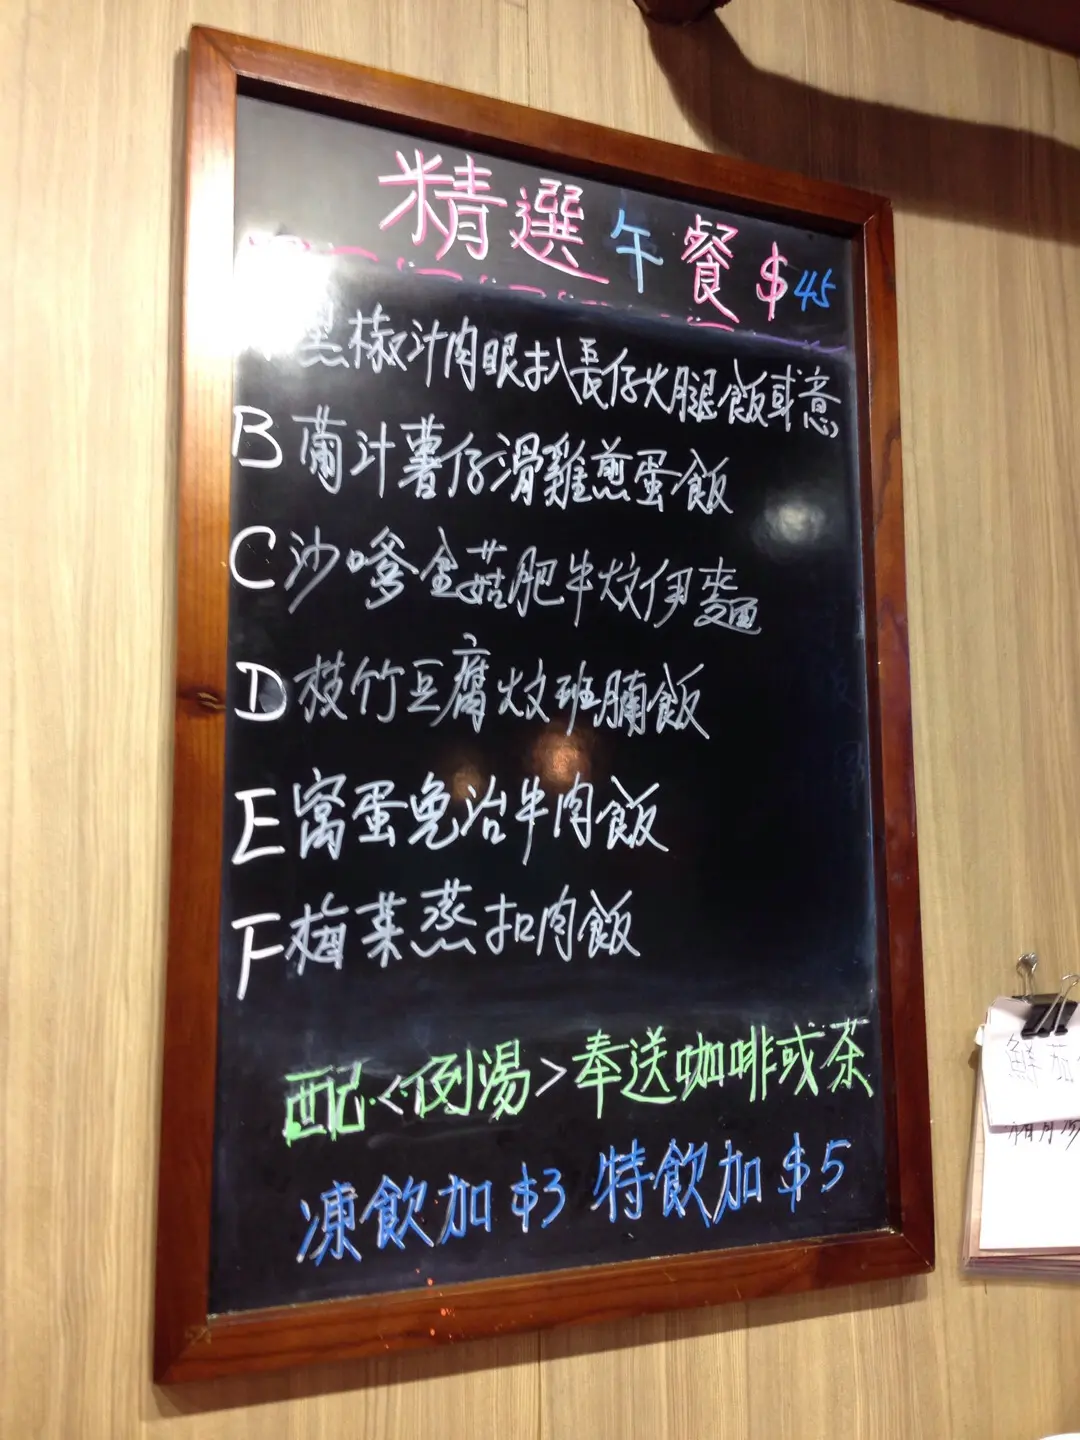 精選午餐$45
黑椒汁肉眼扒長仔火腿飯或意
B 葡汁薯仔滑雞煎蛋飯
C 沙嗲金菇肥牛炆伊麵
D 枝竹豆腐炆班腩飯
E 窩蛋免治牛肉飯
F 梅菜蒸扣肉飯
配<例湯>奉送咖啡或茶
凍飲加$3 特飲加$5
鮮茄